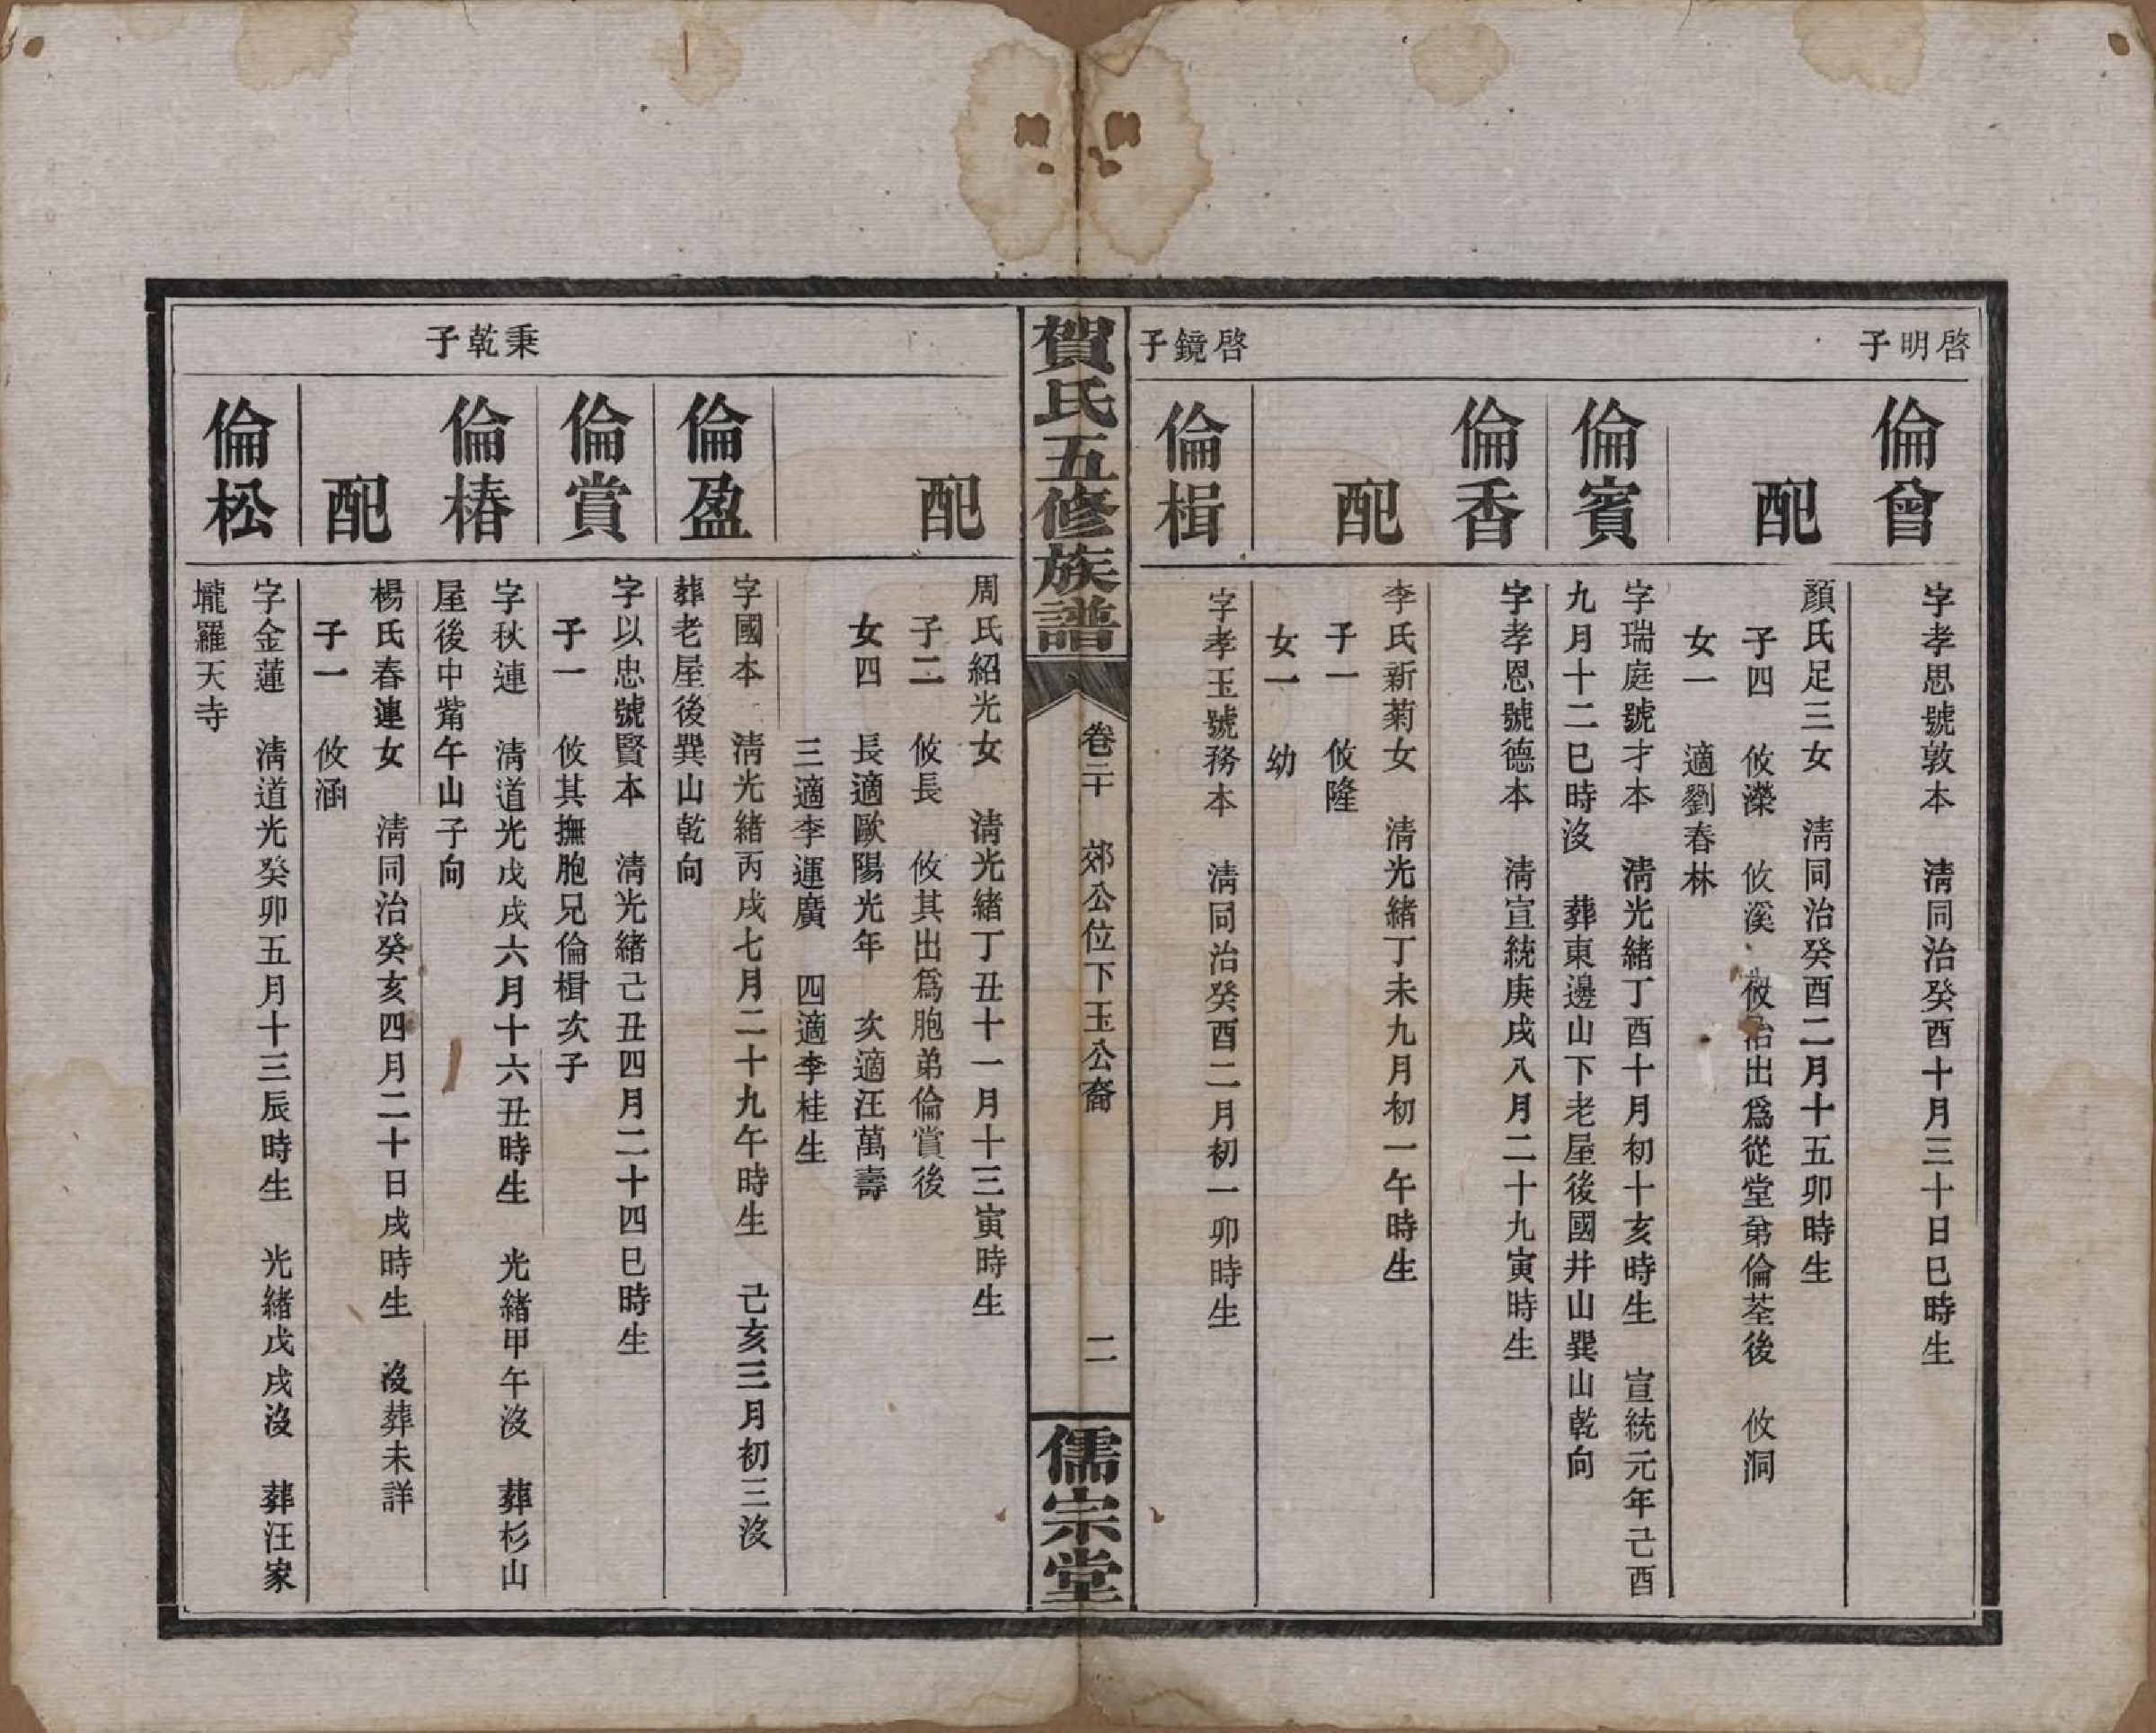 啓明子
倫曾
字孝思號敦本　淸同治癸酉十月三十日巳時生
配
顏氏足三女　淸同治癸酉二月十五卯時生
子四　攸濼　攸溪　攸治出爲從堂弟倫荃後　攸洞
女一　適劉春林
倫賓
字瑞庭號才本　淸光緒丁酉十月初十亥時生　宣統元年己酉
九月十二巳時沒　葬東邊山下老屋後國井山巽山乾向
倫香
字孝恩號德本　淸宣統庚戌八月二十九寅時生
配
李氏新菊女　淸光緒丁未九月初一午時生
子一　攸隆
女一　幼
啓鏡子
倫楫
字孝玉號務本　淸同治癸酉二月初一卯時生
賀氏五修族譜
卷二十　郊公位下玉公裔
二
儒宗堂
配
周氏紹光女　淸光緒丁丑十一月十三寅時生
子二　攸長　攸其出爲胞弟倫賞後
女四　長適歐陽光年　次適汪萬壽
三適李運廣　四適李桂生
倫盈
字國本　淸光緒丙戌七月二十九午時生　己亥三月初三沒
葬老屋後巽山乾向
倫賞
字以忠號賢本　淸光緒己丑四月二十四巳時生
子一　攸其撫胞兄倫楫次子
秉乾子
倫椿
字秋連　淸道光戊戌六月十六丑時生　光緒甲午沒　葬杉山
屋後中觜午山子向
配
楊氏春連女　淸同治癸亥四月二十日戌時生　沒葬未詳
子一　攸涵
倫松
字金蓮　淸道光癸卯五月十三辰時生　光緒戊戌沒　葬汪家
壠羅天寺